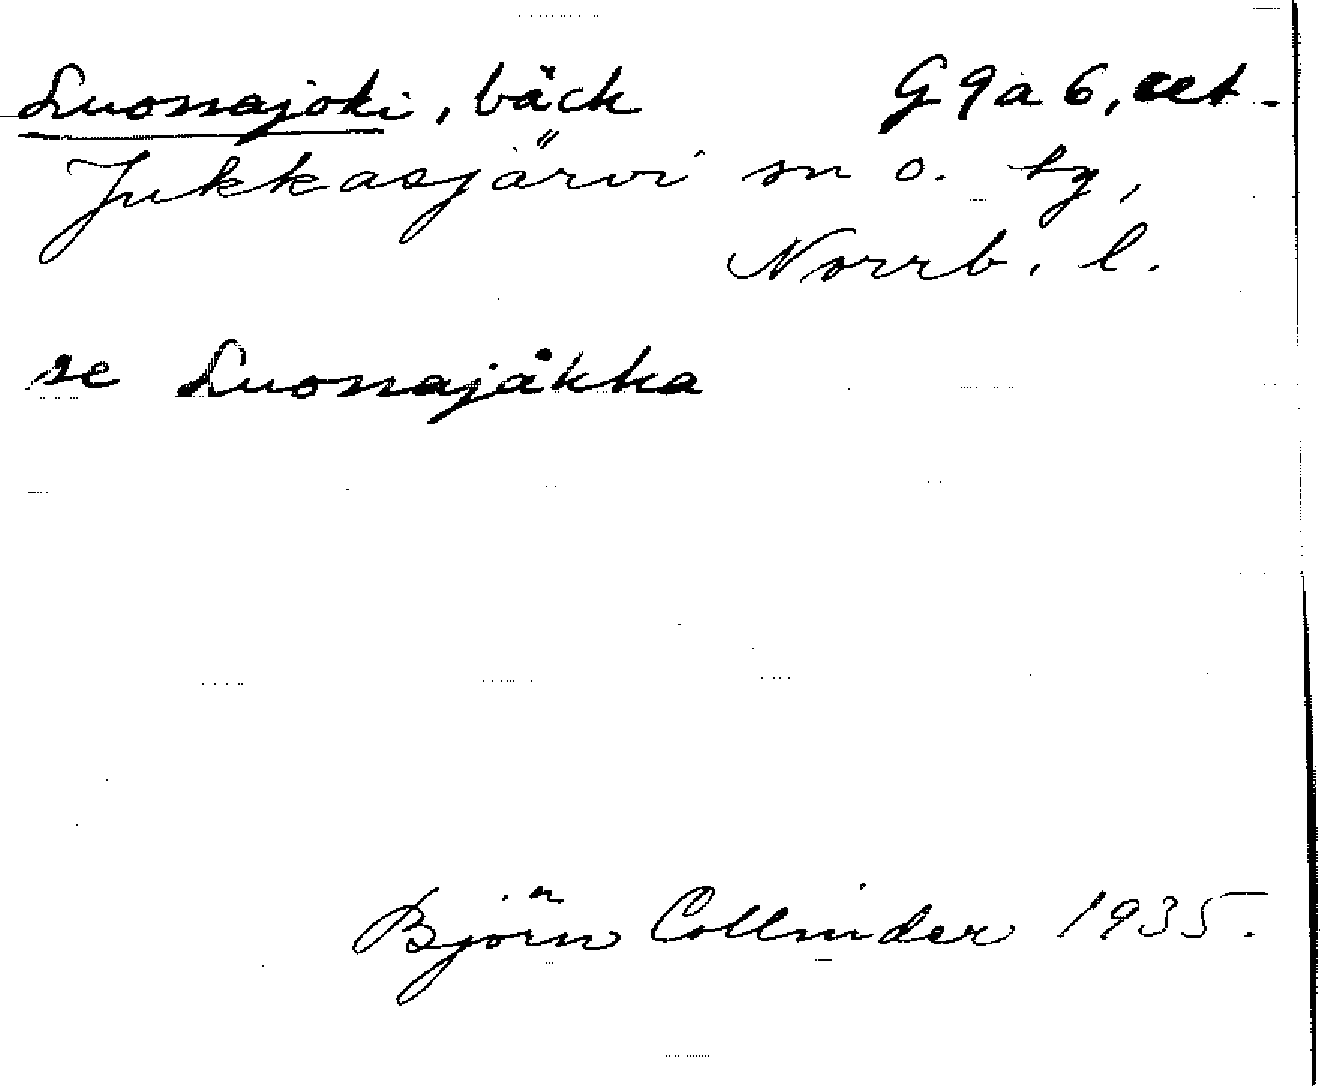 Luossajoki, bäck G 9 a 6, cet.
Jukkasjärvi sn o. tg,
Norrb. l.
se Luossajåkka
Björn Collinder 1935.